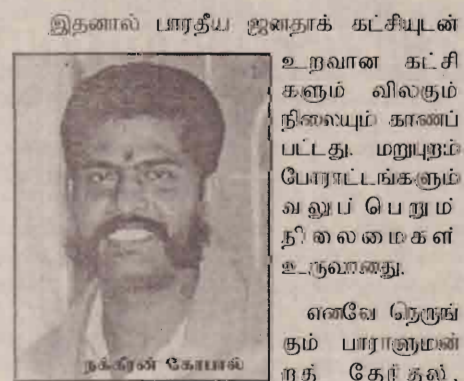 இதனால் பாரதீய ஜனதாக் கட்சியுடன்
உறவான கட்சி
களும் விலகும்
நிலையும் காணப்
பட்டது. மறுபுறம்
போராட்டங்களும்
வலுப் பெறும்
நிலைமைகள்
உருவானது.
எனவே நெருங்
கும் பாராளுமன்
றத் தேர்தல்,
நக்கீரன் கோபால்